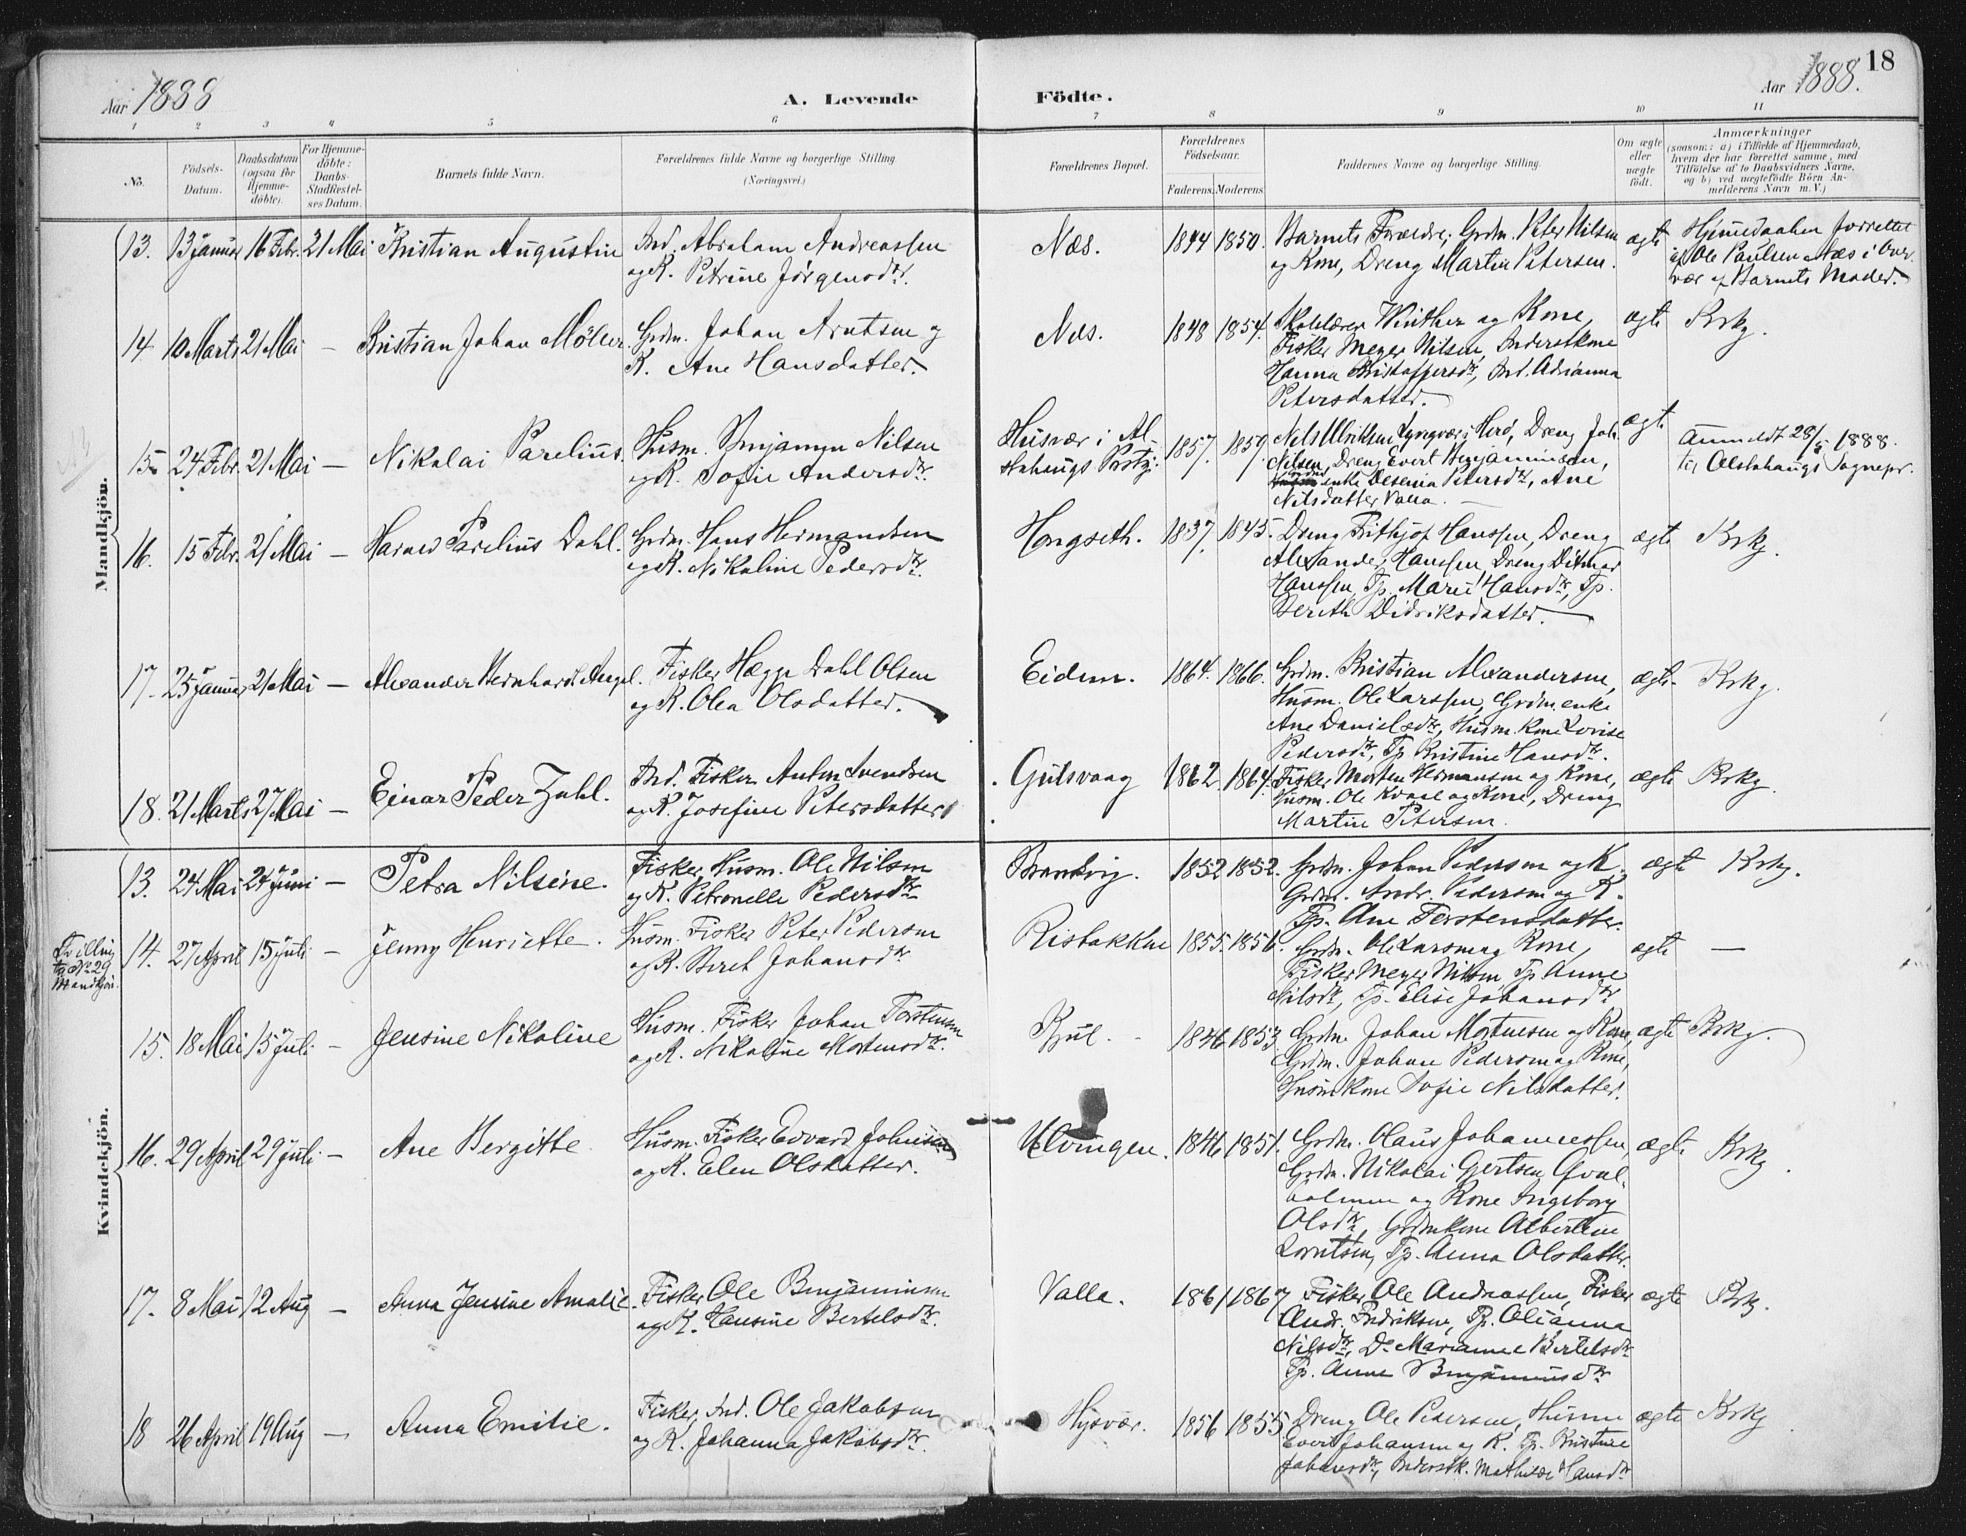 18
Aar 1888
A. Levende Födte.
Aar 1888.
1 2 3 4 5 6 7 8 9 10 11
No.
Födsels-Datum.
Daabsdatum (ogsaa for Hjemme-döbte).
For Hjemme-döbte: Daabs-Stadfæstel-ses Datum.
Barnets fulde Navn.
Forældrenes fulde Navne og borgerlige Stilling (Næringsvei.)
Forældrenes Bopæl.
Forældrenes Födselsaar.
Faderens. Moderens.
Faddernes Navne og borgerlige Stilling.
Om ægte eller uægte födt.
Anmærkninger
(saasom: a) i Tilfælde af Hjemmedaab, hvem der har forrettet samme, med Tilföielse af to Daabsvidners Navne, og b) ved uægtefödte Börn An-melderens Navn m. V.)
Mandkjön.
13. 13 Januar 16 Febr. 21 Mai Kristian Augustin Ind. Abraham Andreassen
og K. Petrine Jørgensdtr.
Næs. 1844 1850. Barnets Forældre, Grdm. Peter Nilsen
og Kone, Dreng Martin Petersen.
ægte Hjemedaaben forrettet
af Ole Paulsen Næs i Over
vær af Barnets Moder.
14 10 Marts 21 Mai — Kristian Johan Möller. Grdm. Johan Arntsen og
K. Ane Hansdatter.
Næs. 1848 1854. Skolelærer Winther og Kone,
Fisker Meyer Nilsen, Inderstkone
Hanna Kristoffersdtr, Ind. Adrianna
Petersdatter.
ægte Krkg.
15 24 Febr. 21 Mai — Nikolai Parelius. Husm. Benjamin Nilsen
og K. Sofie Andersdtr.
Husvær i Al-
stahaugs Prstg. 1857. 1859. Nils Ulriksen Lyngvær i Herö, Dreng Joh.
Nilsen, Dreng Evert Benjaminsen,
enke Desenia Petersdtr, Ane
Nilsdatter Valla.
ægte Anmeldt 28/5 1888
til Alstahaugs Sognepr.
16. 15 Febr. 21 Mai — Harald Parelius Dahl. Grdm. Hans Hermandsen
og K. Nikoline Pedersdtr.
Hongseth. 1837. 1845. Dreng Frithjof Hanssen, Dreng
Alexander Hanssen, Dreng Ditmar
Hanssen, Tp. Marie Hansdtr, Tp.
Berith Didriksdatter.
ægte Krkg.
17. 25 Januar 21 Mai — Alexander Bernhard Angel. Fisker Hægge Dahl Olsen
og K. Olea Olsdatter.
Eidem. 1864. 1866. Grdm. Kristian Alexandersen,
Husm. Ole Larssen, Grdm.enke
Ane Danielsdtr, Husm.kone Lovise
Pedersdtr, Tp Kristine Hansdtr.
ægte. Krkg.
18. 21 Marts 27 Mai — Einar Peder Zahl. Ind. Fisker Anton Svendsen
og K. Josefine Petersdatter
Gulsvaag 1862 1864. Fisker Morten Hermansen og Kone,
Husm. Ole Kvaal og Kone, Dreng
Martin Petersen.
ægte Krkg.
Kvindekjön.
13. 24 Mai 24 Juni — Petra Nilsine. Fisker, Husm. Ole Nilsen
og K. Petronelle Pedersdtr
Brandvig. 1852 1852. Grdm. Johan Pedersen og K.
Grdm. Andr. Pedersen og K.
Tp. Ane Torstensdatter.
ægte Krkg.
Tvilling
til No 29
Mandkjön.
14. 27 April 15 Juli — Jenny Henriette. Husm. Fisker Peter Pedersen
og K. Beret Johansdtr
Risbakken 1855. 1856. Grdm. Ole Larsen og Kone,
Fisker Meyer Nilsen, Tp. Anne
Nilsdtr, Tp. Elise Johansdtr
ægte —
15. 18 Mai 15 Juli — Jensine Nikoline Husm. Fisker Johan Torstensen
og K. Nikoline Mortensdtr.
1846 1853 Grdm. Johan Mortensen og Kone,
Grdm. Johan Pedersen og Kone,
Husm.kone Sofie Nilsdatter.
ægte Krkg.
16. 29 April 29 Juli — Ane Bergitte Husm. Fisker Edvard Johnsen
og K. Elen Olsdatter.
Ulvingen. 1846 1851. Grdm. Olaus Johannessen,
Grdm. Nikolai Gjertsen Qval-
holmen og Kone Ingeborg
Olsdtr, Grdm.kone Albertine
Lorntsen, Tp. Anna Olsdatter.
ægte Krkg.
17. 8 Mai 12 Aug — Anna Jensine Amalie. Fisker Ole Benjaminsen
og K. Hansine Bertelsdtr.
Valla. 1861 1867 Fisker Ole Andreassen, Fisker
Andr. Fredriksen, Tp. Olianna
Nilsdtr, Do Marianne Bertelsdtr
Tp. Anne Benjaminsdtr
ægte Krkg.
18 26 April 19 Aug — Anna Emilie. Fisker, Ind. Ole Jakobsen
og K. Johanna Jakobsdtr.
Hysvær. 1856 1855 Dreng Ole Pedersen, Husm
Evert Johansen og K. Tp. Kristine
Johansdtr, Inderstk. Mathilde Hansdtr
ægte Krkg